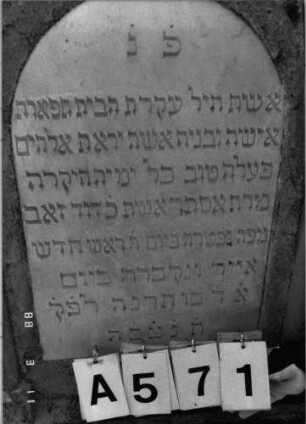 פ נ
אשת חיל עקרת הבית תפארת
אישה ובניה אשה יראת אלהים
פעלה טוב כל ימי חי יקרה
מרת אסתר אשת כ דוד זאב
נפטרת ביום ראש חדש
אייר ונקברה ביום
א ל בו תרנה לפק
ת נ צ ב ה
A 5 7 1
11 3 88